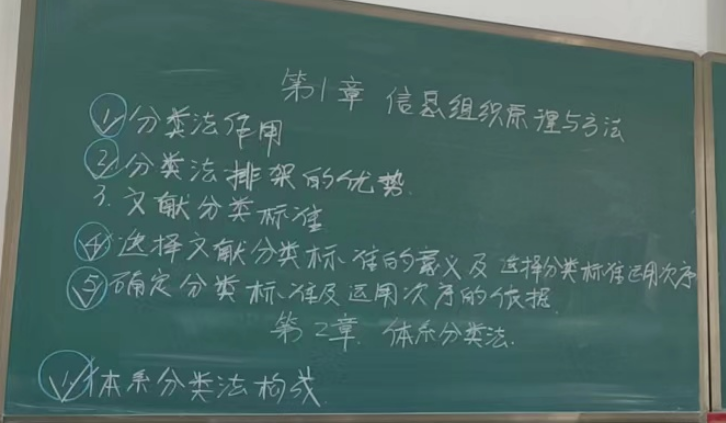 第1章 信息组织原理与方法
1. 分类法作用
2. 分类法排架的优势.
3. 文献分类标准
4. 选择文献分类标准的意义及选择分类标准运用次序
5. 确定分类标准及运用次序的依据.
第2章. 体系分类法.
1. 体系分类法构成